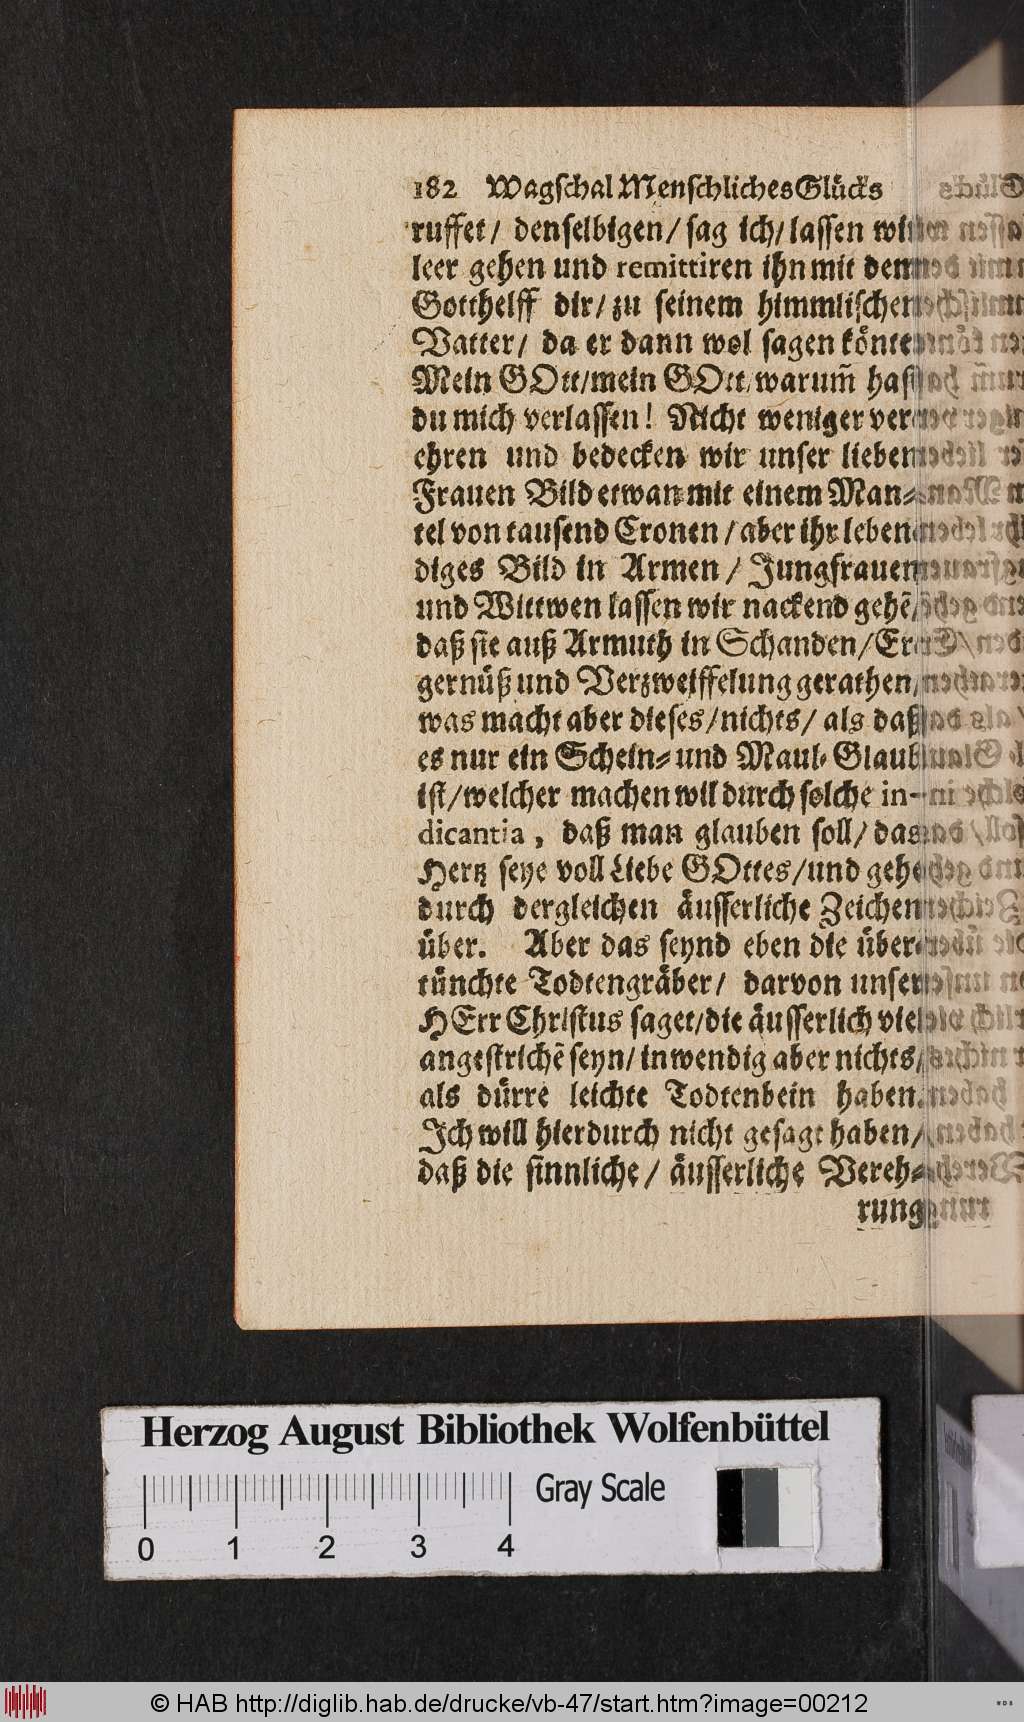 182 Wagschal Menschliches Glücks
ruffet / denselbigen / sag ich / lassen wir
leer gehen und remittiren ihn mit dem
Gotthelff dir / zu seinem himmlischen
Vatter / da er dann wol sagen könte
Mein GOtt / mein GOtt / warum̃ hast
du mich verlassen! Nicht weniger ver-
ehren und bedecken wir unser lieben
Frauen Bild etwan mit einem Man-
tel von tausend Cronen / aber ihr leben-
diges Bild in Armen / Jungfrauen
und Wittwen lassen wir nackend gehẽ /
daß sie auß Armuth in Schanden / Er-
gernüß und Verzweiffelung gerathen /
was macht aber dieses / nichts / als daß
es nur ein Schein- und Maul-Glaub
ist / welcher machen wil durch solche in-
dicantia, daß man glauben soll / das
Hertz seye voll Liebe GOttes / und gehe
durch dergleichen äusserliche Zeichen
über. Aber das seynd eben die über-
tünchte Todtengräber / darvon unser
HErr Christus saget / die äusserlich viel
angestrichẽ seyn / inwendig aber nichts /
als dürre leichte Todtenbein haben.
Ich will hierdurch nicht gesagt haben /
daß die sinnliche / äusserliche Vereh-
rung
Herzog August Bibliothek Wolfenbüttel
Gray Scale
0 1 2 3 4
© HAB http://diglib.hab.de/drucke/vb-47/start.htm?image=00212